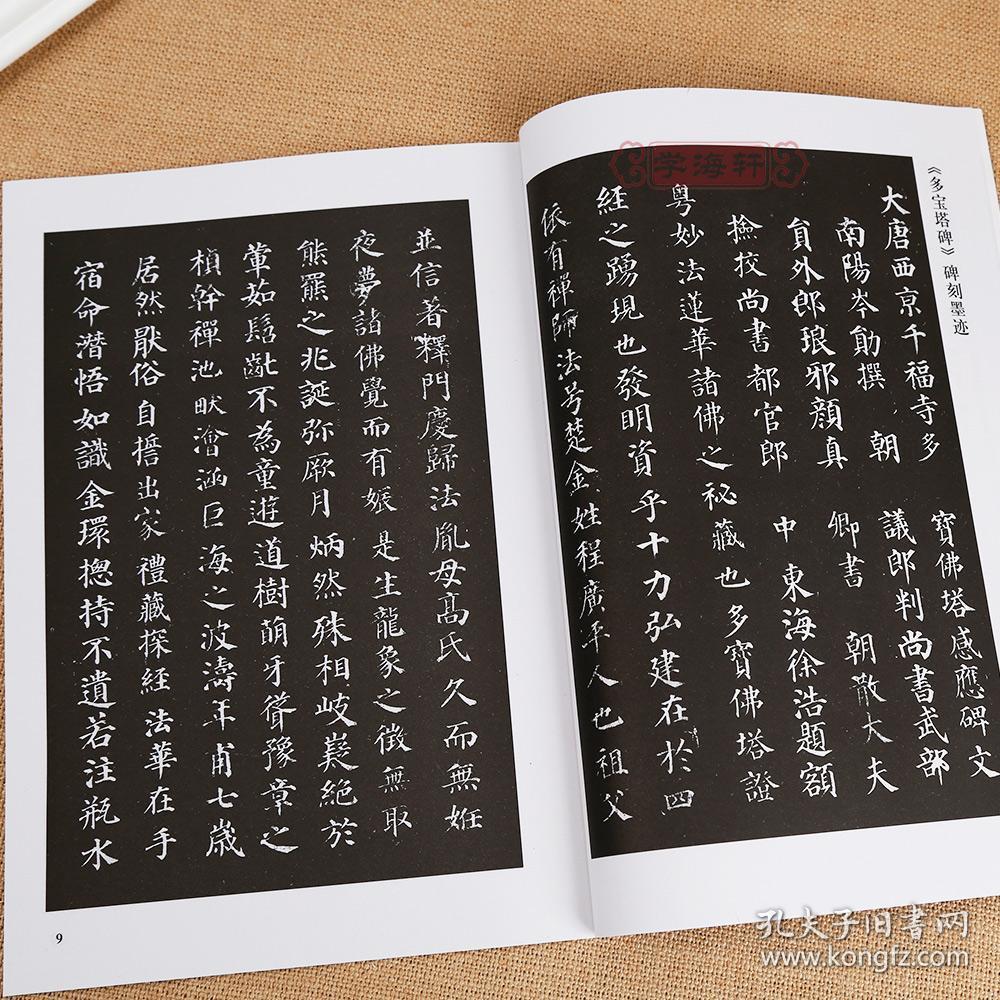 学海轩
《多宝塔碑》碑刻墨迹
大唐西京千福寺多寶佛塔感應碑文
南陽岑勛撰 朝議郎判尚書武部
負外郎琅邪顔真卿書 朝散大夫
撿挍尚書都官郎中東海徐浩題額
粤妙法蓮華諸佛之祕藏也多寶佛塔證
經之踴現也發明資乎十力弘建在於四
依有禪師法号楚金姓程廣平人也祖父
並信著釋門慶歸法胤母高氏久而無姙
夜夢諸佛覺而有娠是生龍象之徵無取
熊羆之兆誕弥厥月炳然殊相岐嶷絶於
葷茹髫齔不為童遊道樹萌牙聳豫章之
楨幹禪池畎澮涵巨海之波濤年甫七歲
居然猒俗自誓出家禮藏探經法華在手
宿命潜悟如識金環揔持不遺若注瓶水
9
孔夫子旧書网
www.kongfz.com